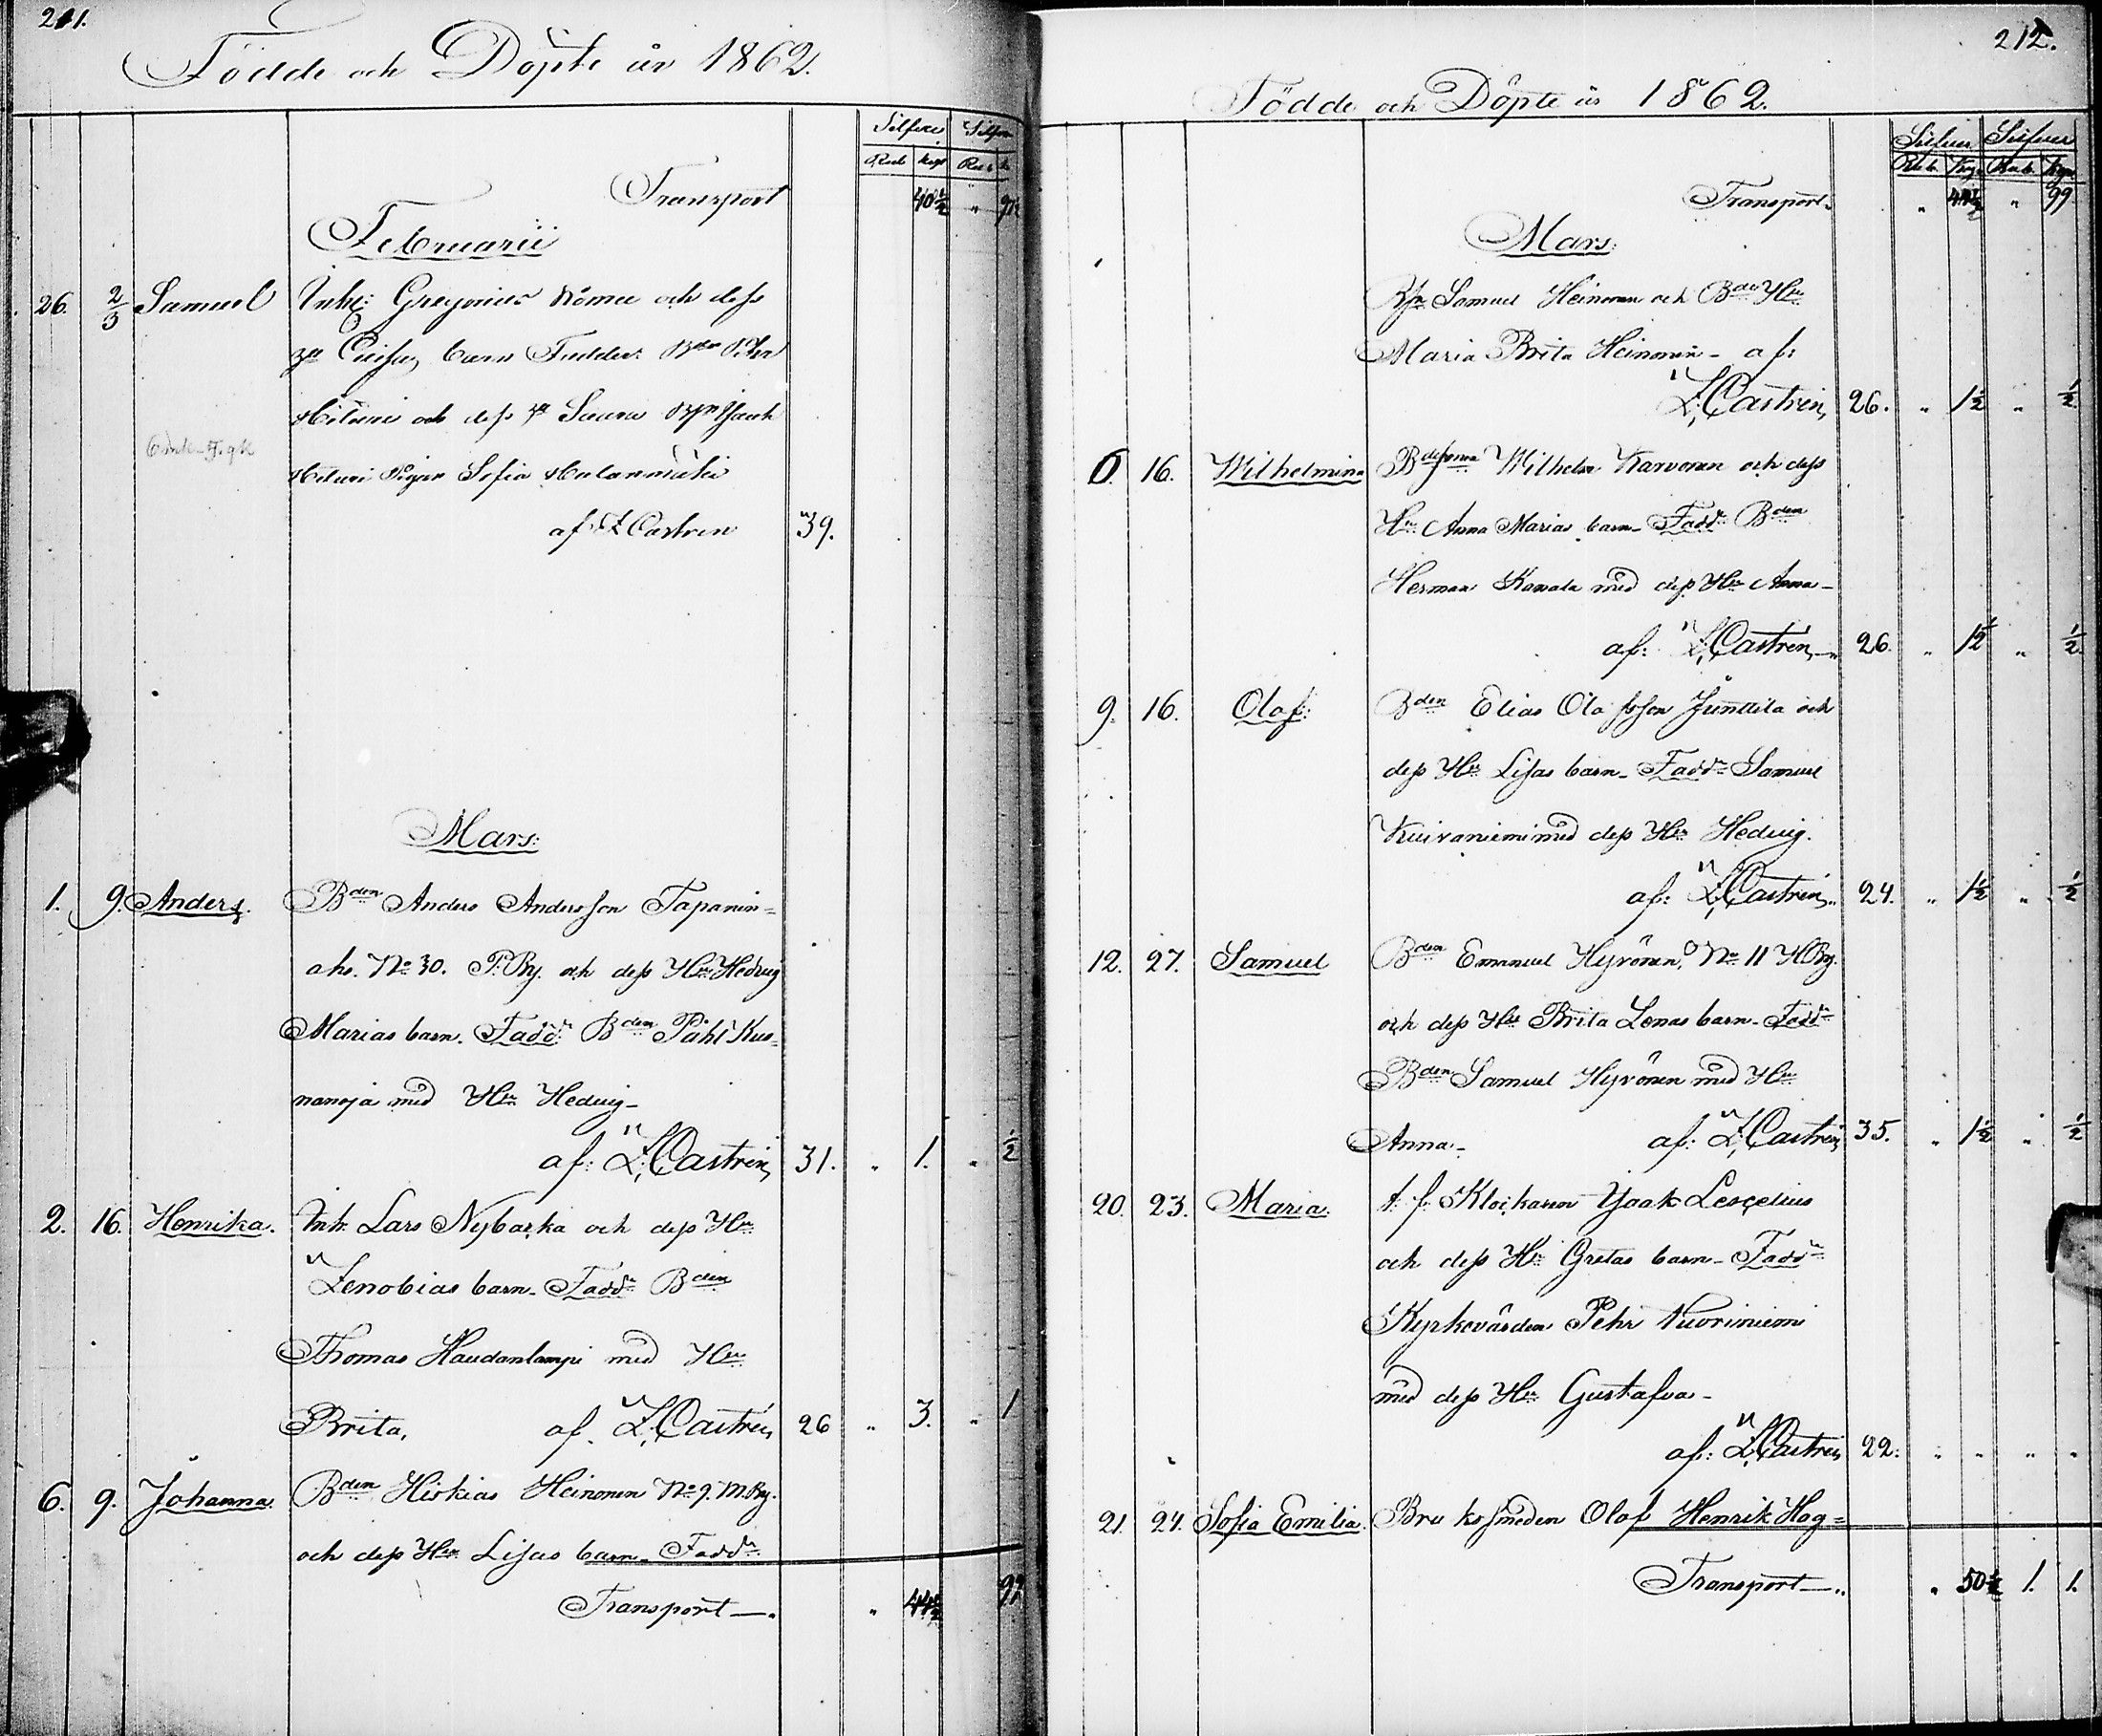 211.
Födde och Döpte år 1862.
Silfver Silfver
Rub Kop Rub K
Transport 40½ "
Februarii
26. 2/3 Samuel Inh: Gregorius och dess
barn Fadder:
och dess Saara
Pigan Sofia
af: Z Castren 39.
Mars:
1. 9. Anders. Bden Anders Andersson Tapanin=
aho. No 30. P.By. och dess Hu Hedvig
Marias barn. Fadd: Bden Påhl Kus=
nanoja med Hu Hedvig-
af: Z. Castrén, 31. " 1. " ½
2. 16. Henrika. Inh. Lars Nybacka och dess Hu
Zenobias barn. Fadd: Bden
Thomas Haudanlampi med Hu
Brita, af. Z. Castrén, 26 " 3. " 1
6. 9. Johanna. Bden Hiskias Heinonen No 9. M.By.
och dess Hu Lisas barn. Fadd:
Transport—. " 44½ 99
212.
Födde och Döpte år 1862.
Silfver Silfver
Rub. Kop. Rub. Kop.
Transport. " 44½ " 99
Mars:
Samuel Heinonen och Bde Hu
Maria Brita Heinonen- af:
Z. Castrén, 26. " 1½ " ½
6. 16. Wilhelmina Bdesonen Wilhelm Karvonen och dess
Hu Anna Marias barn- Fadd: Bden
Herman Kanala med dess Hu Anna-
af: Z. Castrén,— 26. " 1½ " ½
9. 16. Olof: Bden Elias Olofsson Junttila och
dess Hu Lisas barn- Fadd: Samuel
Kuivaniemi med dess Hu Hedvig.
af: Z. Castrén, 24. " 1½ " ½
12. 27. Samuel Bden Emanuel Hyvönen, No 11 H.By.
och dess Hu Brita Lenas barn- Fadd:
Bden Samuel Hyvönen med Hu
Anna- af: Z. Castrén 35. " 1½ " ½
20. 23. Maria. t. f. Klockaren Isaak Lescelius
och dess Hu Gretas barn- Fadd:
Kyrkovärden Pehr Vuoriniemi
med dess Hu Gustafva-
af: Z. Castrén, 22. " " " "
21. 24. Sofia Emilia. Brukssmeden Olof Henrik Hag=
Transport—. " 50½ 1. 1.